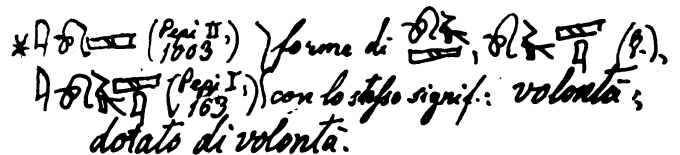 * (Pepi II, 1003) } forme di , (?),
(Pepi I, 163) } con lo stesso signif.: volontà;
dotato di volontà.